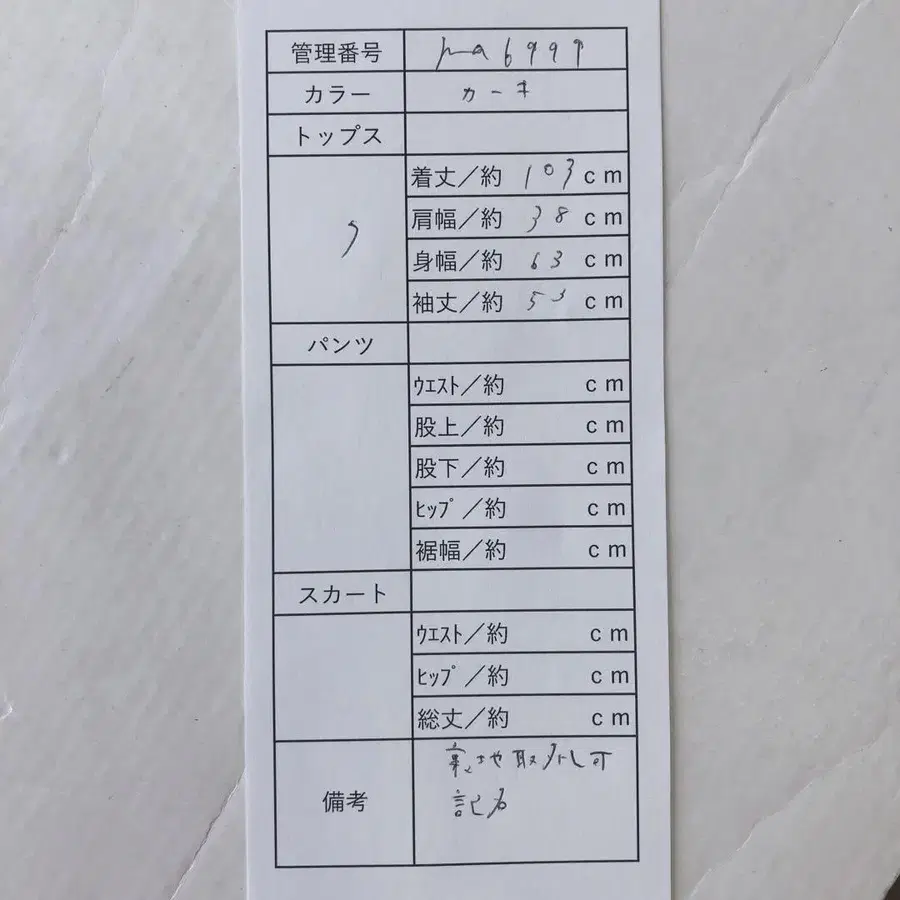 管理番号 ma6999
カラー カーキ
トップス
着丈／約 103 cm
肩幅／約 38 cm
身幅／約 63 cm
袖丈／約 53 cm
パンツ
ｳｴｽﾄ／約 cm
股上／約 cm
股下／約 cm
ﾋｯﾌﾟ／約 cm
裾幅／約 cm
スカート
ｳｴｽﾄ／約 cm
ﾋｯﾌﾟ／約 cm
総丈／約 cm
備考 裏地取外し可
記名